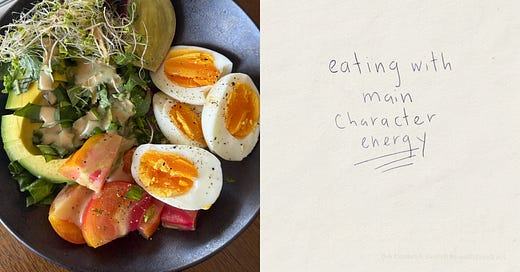 eating with
main
character
energy